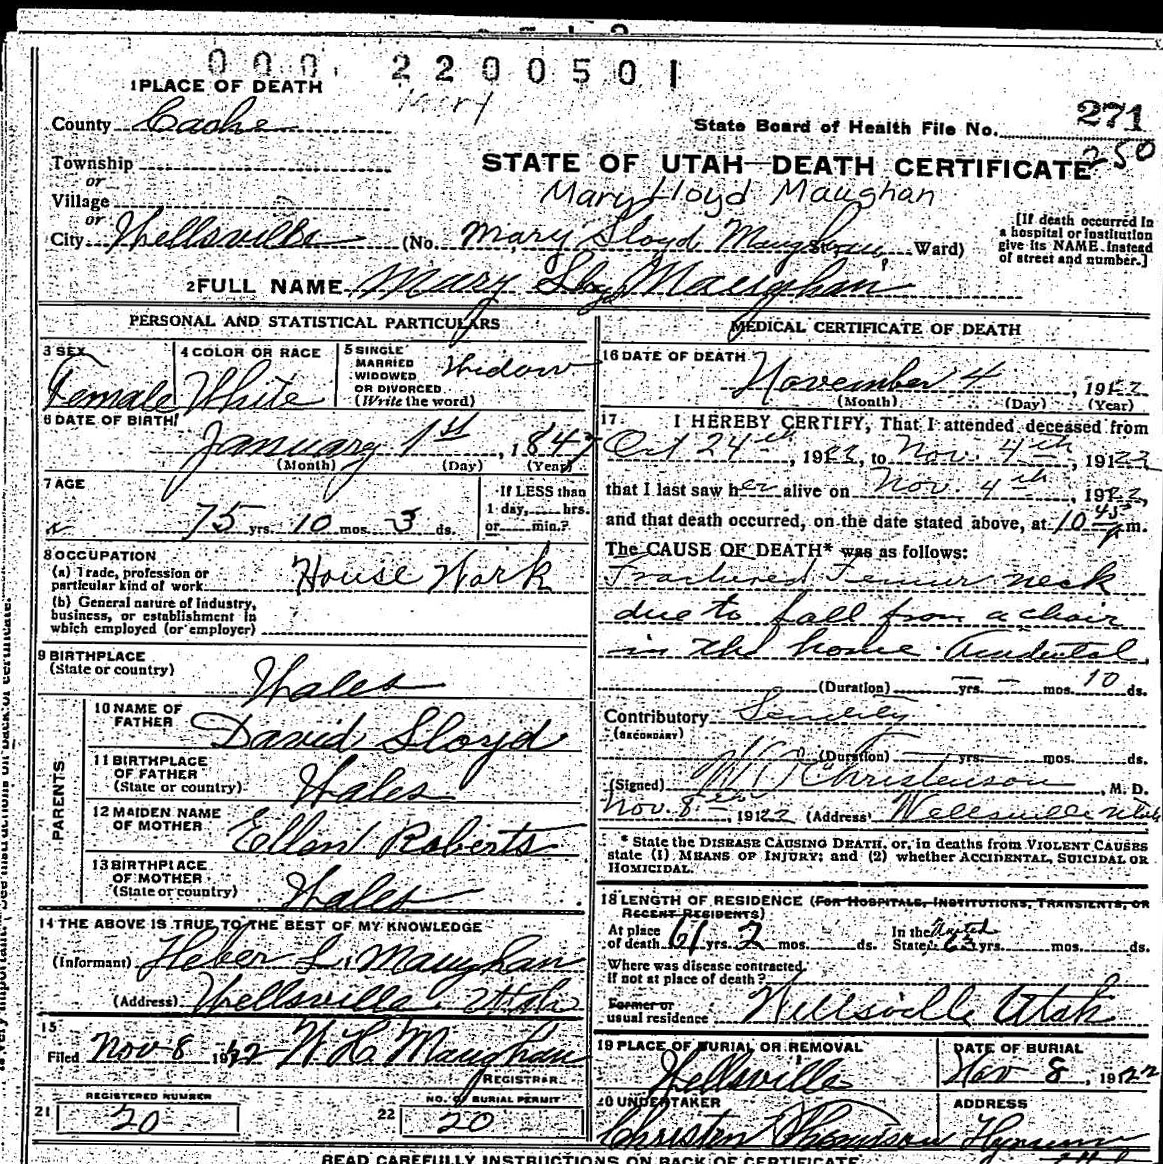 000 2200501
1 PLACE OF DEATH
Mary
County Cache
State Board of Health File No. 271
250
Township
or
STATE OF UTAH—DEATH CERTIFICATE
Village
Mary Lloyd Maughan
or
City Wellsville (No. Mary Lloyd Maughan St., Ward)
[If death occurred in a hospital or institution give its NAME instead of street and number.]
2 FULL NAME Mary Lloyd Maughan
PERSONAL AND STATISTICAL PARTICULARS
3 SEX Female
4 COLOR OR RACE White
5 SINGLE MARRIED WIDOWED OR DIVORCED (Write the word) Widow
6 DATE OF BIRTH
January 1st, 1847
(Month) (Day) (Year)
7 AGE
75 yrs. 10 mos. 3 ds.
If LESS than 1 day, hrs. or min.?
8 OCCUPATION
(a) Trade, profession or particular kind of work House Work
(b) General nature of industry, business, or establishment in which employed (or employer)
9 BIRTHPLACE
(State or country) Wales
PARENTS
10 NAME OF FATHER David Lloyd
11 BIRTHPLACE OF FATHER (State or country) Wales
12 MAIDEN NAME OF MOTHER Ellen Roberts
13 BIRTHPLACE OF MOTHER (State or country) Wales
14 THE ABOVE IS TRUE TO THE BEST OF MY KNOWLEDGE
(Informant) Heber L. Maughan
(Address) Wellsville Utah
15
Filed Nov 8 1922 W H Maughan
REGISTRAR
REGISTERED NUMBER
21 20
NO. OF BURIAL PERMIT
22 20
MEDICAL CERTIFICATE OF DEATH
16 DATE OF DEATH
November 4, 1922
(Month) (Day) (Year)
17 I HEREBY CERTIFY, That I attended deceased from
Oct 24th, 1922, to Nov. 4th, 1922
that I last saw her alive on Nov. 4th, 1922,
and that death occurred, on the date stated above, at 10 45 p.m.
The CAUSE OF DEATH* was as follows:
Fractured Femur neck
due to fall from a chair
in the home. Accidental
(Duration) — yrs. — mos. 10 ds.
Contributory Senility
(SECONDARY)
(Duration) yrs. mos. ds.
(Signed) Christenson, M. D.
Nov. 8th, 1922 (Address) Wellsville Utah
* State the DISEASE CAUSING DEATH, or, in deaths from VIOLENT CAUSES
state (1) MEANS OF INJURY; and (2) whether ACCIDENTAL, SUICIDAL OR
HOMICIDAL.
18 LENGTH OF RESIDENCE (FOR HOSPITALS, INSTITUTIONS, TRANSIENTS, OR
RECENT RESIDENTS)
At place of death 61 yrs. 2 mos. ds. In the United States 63 yrs. mos. ds.
Where was disease contracted,
if not at place of death?
Former or
usual residence Wellsville Utah
19 PLACE OF BURIAL OR REMOVAL
Wellsville
DATE OF BURIAL
Nov 8, 1922
20 UNDERTAKER
ADDRESS
Hyrum
READ CAREFULLY INSTRUCTIONS ON BACK OF CERTIFICATE